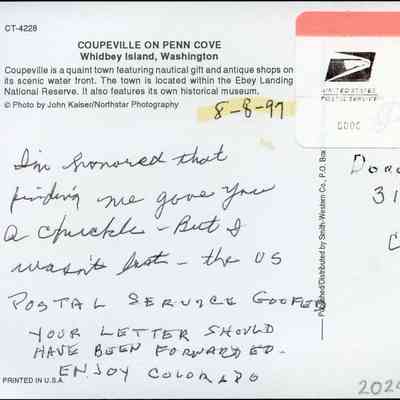 CT-4228
COUPEVILLE ON PENN COVE
Whidbey Island, Washington
Coupeville is a quaint town featuring nautical gift and antique shops on
its scenic water front. The town is located within the Ebey Landing
National Reserve. It also features its own historical museum.
© Photo by John Kaiser/Northstar Photography
8-8-97
UNITED STATES
POSTAL SERVICE
I'm honored that
finding me gave you
a chuckle - But I
wasn't lost - the US
POSTAL SERVICE GOOFED
YOUR LETTER SHOULD
HAVE BEEN FORWARDED.
ENJOY COLORADO
PRINTED IN U.S.A.
Published/Distributed by Smith-Western Co., P.O. Bo
31
C
2024